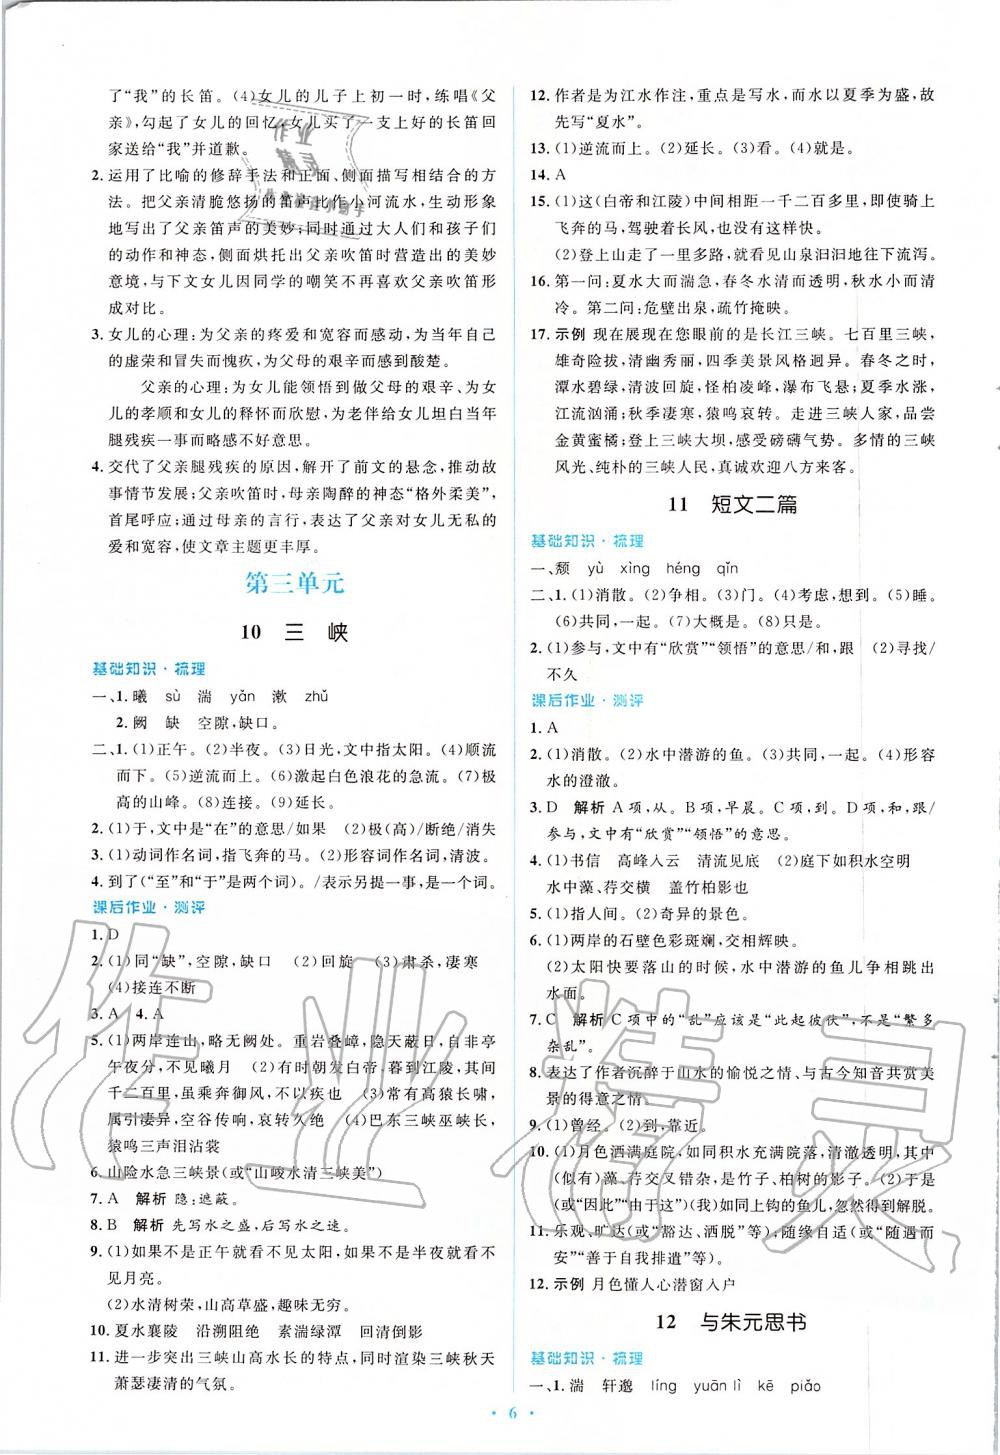 了“我”的长笛。(4)女儿的儿子上初一时,练唱《父
亲》,勾起了女儿的回忆,女儿买了一支上好的长笛回
家送给“我”并道歉。
2. 运用了比喻的修辞手法和正面、侧面描写相结合的方
法。把父亲清脆悠扬的笛声比作小河流水,生动形象
地写出了父亲笛声的美妙;同时通过大人们和孩子们
的动作和神态,侧面烘托出父亲吹笛时营造出的美妙
意境,与下文女儿因同学的嘲笑不再喜欢父亲吹笛形
成对比。
3. 女儿的心理:为父亲的疼爱和宽容而感动,为当年自己
的虚荣和冒失而愧疚,为父母的艰辛而感到酸楚。
父亲的心理:为女儿能领悟到做父母的艰辛、为女
儿的孝顺和女儿的释怀而欣慰,为老伴给女儿坦白当年
腿残疾一事而略感不好意思。
4. 交代了父亲腿残疾的原因,解开了前文的悬念,推动故
事情节发展;父亲吹笛时,母亲陶醉的神态“格外柔美”,
首尾呼应;通过母亲的言行,表达了父亲对女儿无私的
爱和宽容,使文章主题更丰厚。
第三单元
10 三 峡
基础知识·梳理
一、1. 曦 sù 湍 yǎn 漱 zhǔ
2. 阙 缺 空隙,缺口。
二、1. (1)正午。(2)半夜。(3)日光,文中指太阳。(4)顺流
而下。(5)逆流而上。(6)激起白色浪花的急流。(7)极
高的山峰。(8)连接。(9)延长。
2. (1)于,文中是“在”的意思/如果 (2)极(高)/断绝/消失
3. (1)动词作名词,指飞奔的马。(2)形容词作名词,清波。
4. 到了(“至”和“于”是两个词)。/表示另提一事,是一个词。
课后作业·测评
1. D
2. (1)同“缺”,空隙,缺口 (2)回旋 (3)肃杀,凄寒
(4)接连不断
3. A 4. A
5. (1)两岸连山,略无阙处。重岩叠嶂,隐天蔽日,自非亭
午夜分,不见曦月 (2)有时朝发白帝,暮到江陵,其间
千二百里,虽乘奔御风,不以疾也 (3)常有高猿长啸,
属引凄异,空谷传响,哀转久绝 (4)巴东三峡巫峡长,
猿鸣三声泪沾裳
6. 山险水急三峡景(或“山峻水清三峡美”)
7. A 解析 隐:遮蔽。
8. B 解析 先写水之盛,后写水之速。
9. (1)如果不是正午就看不见太阳,如果不是半夜就看不
见月亮。
(2)水清树荣,山高草盛,趣味无穷。
10. 夏水襄陵 沿溯阻绝 素湍绿潭 回清倒影
11. 进一步突出三峡山高水长的特点,同时渲染三峡秋天
萧瑟凄清的气氛。
12. 作者是为江水作注,重点是写水,而水以夏季为盛,故
先写“夏水”。
13. (1)逆流而上。(2)延长。(3)看。(4)成。
14. A
15. (1)这(白帝和江陵)中间相距一千二百多里,即使骑上
飞奔的马,驾驶着长风,也没有这样快。
(2)登上山走了一里多路,就看见山泉汩汩地往下流泻。
16. 第一问:夏水大而湍急,春冬水清而透明,秋水小而清
冷。第二问:危壁出泉,疏竹掩映。
17. 示例 现在展现在您眼前的是长江三峡。七百里三峡,
雄奇险拔,清幽秀丽,四季美景风格迥异。春冬之时,
潭水碧绿,清波回旋,怪柏凌峰,瀑布飞悬;夏季水涨,
江流汹涌;秋季凄寒,猿鸣哀转。走进三峡人家,品尝
金黄蜜橘;登上三峡大坝,感受磅礴气势。多情的三峡
风光、纯朴的三峡人民,真诚欢迎八方来客。
11 短文二篇
基础知识·梳理
一、颓 yù xìng héng qǐn
二、1. (1)消散。(2)争相。(3)门。(4)考虑,想到。(5)睡。
(6)共同,一起。(7)大概是。(8)只是。
2. (1)参与,文中有“欣赏”“领悟”的意思/和,跟 (2)寻找/
不久
课后作业·测评
1. A
2. (1)消散。(2)水中潜游的鱼。(3)共同,一起。(4)形容
水的澄澈。
3. D 解析 A项,从。B项,早晨。C项,到。D项,和,跟/
参与,文中有“欣赏”“领悟”的意思。
4. (1)书信 高峰入云 清流见底 (2)庭下如积水空明
水中藻、荇交横 盖竹柏影也
5. (1)指人间。(2)奇异的景色。
6. (1)两岸的石壁色彩斑斓,交相辉映。
(2)太阳快要落山的时候,水中潜游的鱼儿争相跳出
水面。
7. C 解析 C项中的“乱”应该是“此起彼伏”,不是“繁多
杂乱”。
8. 表达了作者沉醉于山水的愉悦之情、与古今知音共赏美
景的得意之情。
9. (1)曾经。(2)到,靠近。
10. (1)月色洒满庭院,如同积水充满院落,清澈透明,其中
(似有)藻、荇交叉错杂,是竹子、柏树的影子。(2)于是
(或“因此”“由于这”)(我)如同上钩的鱼儿,忽然得到解脱。
11. 乐观、旷达(或“豁达、洒脱”等);随缘自适(或“随遇而
安”“善于自我排遣”等)。
12. 示例 月色懂人心潜窗入户
12 与朱元思书
基础知识·梳理
一、1. 湍 轩邈 líng yuān lì kē piǎo
· 6 ·
作业精灵